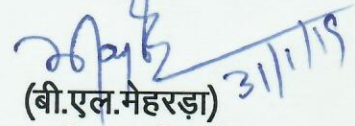 31/1/19
(बी.एल.मेहरड़ा)